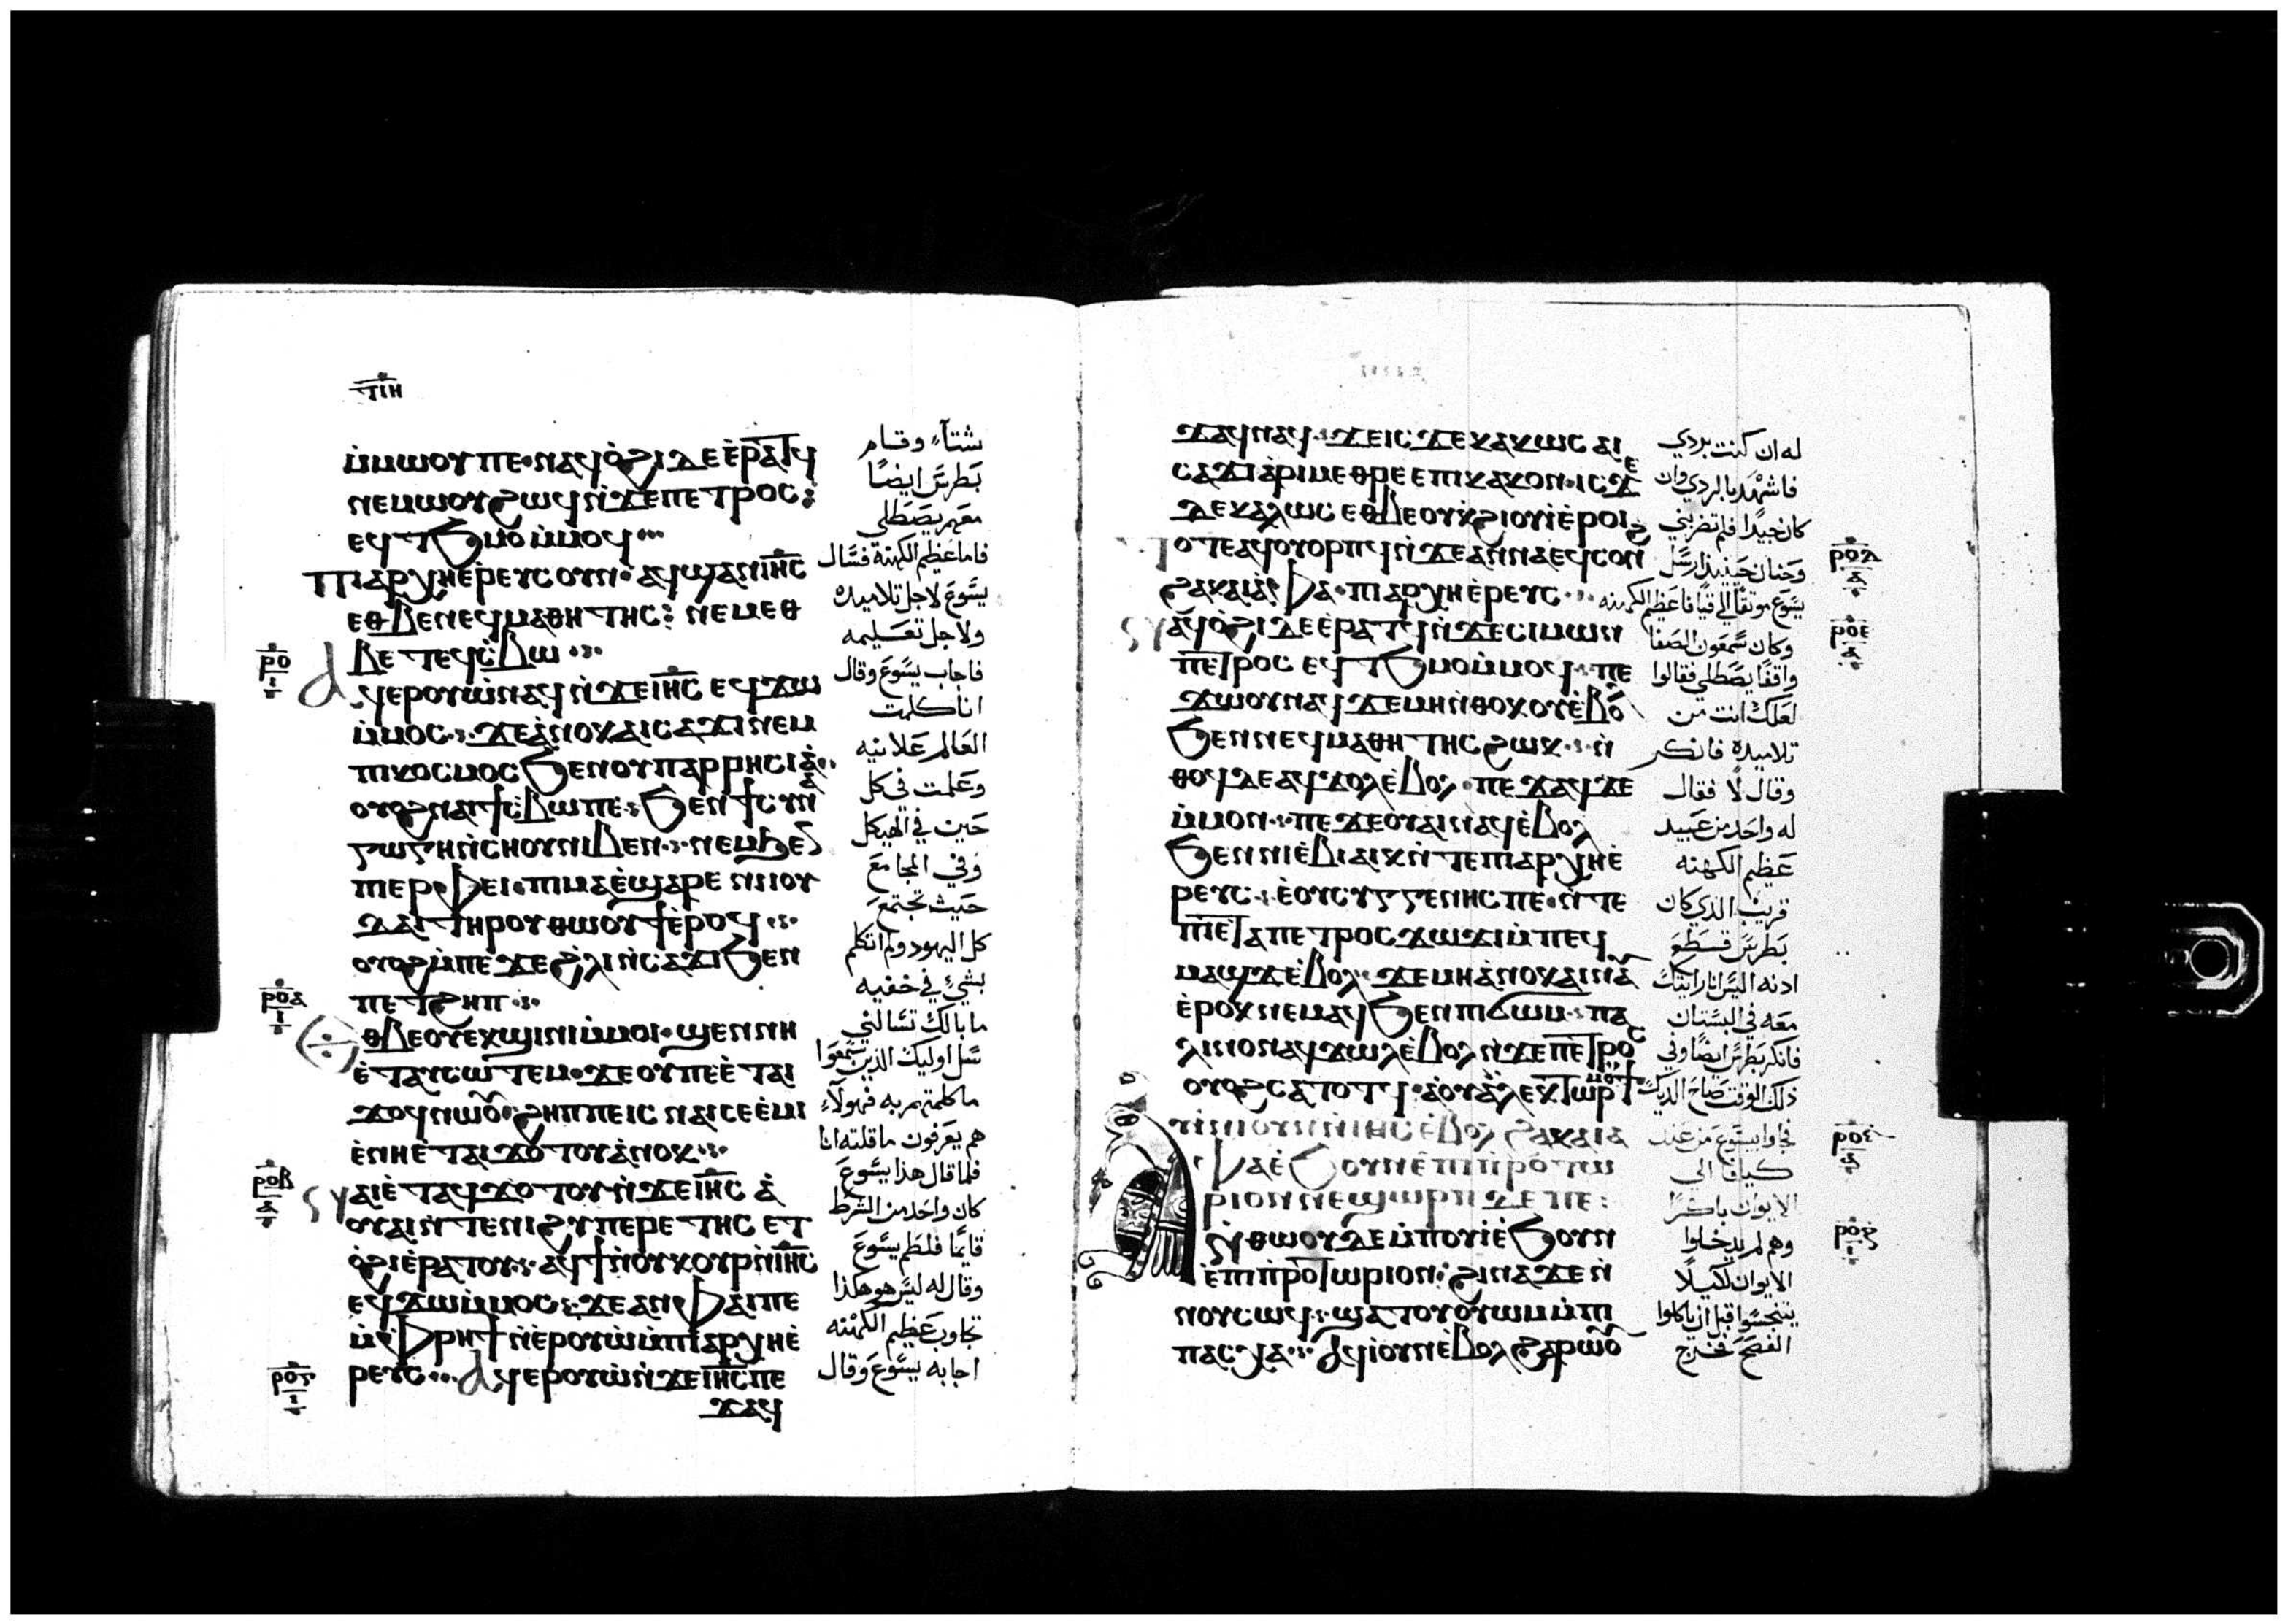 ⲧⲓⲏ
ⲙ̀ⲙⲱⲟⲩⲡⲉ·ⲛⲁϥⲟ̀ϩⲓⲇⲉⲉ̀ⲣⲁⲧϥ
ⲛⲉⲙⲱⲟⲩϩⲱϥⲛ̀ϫⲉⲡⲉⲧⲣⲟⲥ:
ⲉϥⲧϧⲙⲟ ⲙ̀ⲙⲟϥ
ⲡⲓⲁⲣⲭⲏⲉ̀ⲣⲉⲩⲥⲟⲩⲛ·ⲁϥϣⲁⲛⲓⲏ̅ⲥ̅
ⲉⲑⲃⲉⲛⲉϥⲙⲁⲑⲏⲧⲏⲥ: ⲛⲉⲙⲉⲑ
ⲃⲉ ⲧⲉϥⲥ̀ⲃⲱ
ⲁϥⲉⲣⲟⲩⲱ̀ⲛⲁϥⲛ̀ϫⲉⲓⲏ̅ⲥ̅ ⲉϥϫⲱ
ⲙ̀ⲙⲟⲥ·ϫⲉⲁ̀ⲛⲟⲕⲁⲓⲥⲁϫⲓⲛⲉⲙ
ⲡⲓⲕⲟⲥⲙⲟⲥϧⲉⲛⲟⲩⲡⲁⲣⲣⲏⲥⲓⲁ̀
ⲟⲩⲟϩⲛⲁⲓϯⲥ̀ⲃⲱⲡⲉ·ϧⲉⲛ ϯⲥⲩⲛⲁ
ⲅⲱⲅⲏⲛ̀ⲥⲏⲟⲩⲛⲓⲃⲉⲛ·ⲛⲉⲙϧⲉⲛ
ⲡⲓⲉⲣⲫⲉⲓ·ⲡⲓⲙⲁⲉ̀ϣⲁⲣⲉ ⲛⲓⲓⲟⲩ
ⲇⲁⲓ ⲧⲏⲣⲟⲩⲑⲱⲟⲩϯⲉ̀ⲣⲟϥ
ⲟⲩⲟϩⲙ̀ⲡⲉϫⲉϩⲗⲓⲛ̀ⲥⲁϫⲓϧⲉⲛ
ⲡⲉⲧϩⲏⲡ
ⲉⲑⲃⲉⲟⲩⲉⲕϣⲓⲛⲓⲙ̀ⲙⲟⲓ·ϣⲉⲛⲛⲏ
ⲉ̀ⲧⲁⲩⲥⲱⲧⲉⲙ·ϫⲉⲟⲩⲡⲉⲉ̀ⲧⲁⲓ
ϫⲟϥⲛⲱⲟⲩ·ϩⲏⲡⲡⲉⲓⲥ ⲛⲁⲓⲥⲉⲉ̀ⲙⲓ
ⲉ̀ⲛⲏⲉ̀ⲧⲁⲓϫⲟⲧⲟⲩⲁ̀ⲛⲟⲕ
ⲛⲁⲓⲉ̀ⲧⲁϥϫⲟⲧⲟⲩⲛ̀ϫⲉⲓⲏ̅ⲥ̅ ⲁ̀
ⲟⲩⲁⲓⲛ̀ⲧⲉⲛⲓϩⲩⲡⲉⲣⲉⲧⲏⲥ ⲉⲧ
ⲟ̀ϩⲓⲉ̀ⲣⲁⲧⲟⲩ·ⲁϥϯⲛ̀ⲟⲩⲕⲟⲩⲣⲛ̀ⲓⲏ̅ⲥ̅
ⲉϥϫⲱⲙ̀ⲙⲟⲥ·ϫⲉⲁⲛⲫⲁⲓⲡⲉ
ⲙ̀ⲫⲣⲏϯⲛ̀ⲉⲣⲟⲩⲱ̀ⲙ̀ⲡⲓⲁⲣⲭⲏⲉ̀
ⲣⲉⲩⲥ ⲁϥⲉⲣⲟⲩⲱ̀ⲛ̀ϫⲉⲓⲏ̅ⲥ̅ⲡⲉ
ϫⲁϥ
شتآء وقام
بطرس ايضًا
معهم يصطلي
فاما عظيم الكهنة فسال
يسوع لاجل تلاميذه
ولاجل تعليمه
فاجاب يسوع وقال
انا كلمت
العالم علانيه
وعلمت في كل
حين في الهيكل
وفي المجامع
حيث تجتمع
كل اليهود ولم اتكلم
بشيء في خفيه
ما بالك تسالني
سل اوليك الذين سمعوا
ما كلمتهم به فهولآء
هم يعرفون ما قلته انا
فلما قال هذا يسوع
كان واحد من الشرط
قايمًا فلطم يسوع
وقال له ليس هو هكذا
تجاوب عظيم الكهنه
اجابه يسوع وقال
ⲣⲟ
ⲣⲟⲁ
ⲣⲟⲃ
ⲣⲟⲅ
ϫⲁϥⲛⲁϥ·ϫⲉⲓⲥϫⲉⲕⲁⲕⲱⲥ ⲁⲓ
ⲥⲁϫⲓⲁ̀ⲣⲓⲙⲉⲑⲣⲉ ⲉⲡⲓⲕⲁⲕⲟⲛ·ⲓⲥϫⲉ
ⲇⲉⲕⲁⲗⲱⲥ ⲉⲑⲃⲉⲟⲩⲕ̀ϩⲓⲟⲩⲓ̀ⲉ̀ⲣⲟⲓ
ⲟⲧⲉⲁϥⲟⲩⲟⲣⲡϥⲛ̀ϫⲉⲁⲛⲛⲁⲉϥⲥⲟⲛϩ
ϩⲁⲕⲁⲓⲁ̀ⲫⲁ·ⲡⲓⲁⲣⲭⲏⲉ̀ⲣⲉⲩⲥ
ⲛⲁϥⲟ̀ϩⲓⲇⲉⲉ̀ⲣⲁⲧϥⲛ̀ϫⲉⲥⲓⲙⲱⲛ
ⲡⲉⲧⲣⲟⲥ ⲉϥⲧϧⲙⲟⲙ̀ⲙⲟϥ·ⲡⲉ
ϫⲱⲟⲩⲛⲁϥϫⲉⲙⲏⲛ̀ⲑⲟⲕⲟⲩⲉ̀ⲃⲟⲗ
ϧⲉⲛⲛⲉϥⲙⲁⲑⲏⲧⲏⲥϩⲱⲕ·ⲛ̀
ⲑⲟϥⲇⲉⲁϥϫⲟⲗⲉ̀ⲃⲟⲗ·ⲡⲉϫⲁϥϫⲉ
ⲙ̀ⲙⲟⲛ·ⲡⲉϫⲉⲟⲩⲁⲓⲛⲁϥⲉ̀ⲃⲟⲗ
ϧⲉⲛⲛⲓⲉ̀ⲃⲓⲁⲓⲕⲛ̀ⲧⲉⲡⲓⲁⲣⲭⲏⲉ̀
ⲣⲉⲩⲥ·ⲉ̀ⲟⲩⲥⲩⲅⲅⲉⲛⲏⲥⲡⲉ·ⲛ̀ⲧⲉ
ⲡⲏⲉⲧⲁⲡⲉⲧⲣⲟⲥϫⲱϫⲓⲙ̀ⲡⲉϥ
ⲙⲁϣϫⲉ̀ⲃⲟⲗ·ϫⲉⲙⲏⲁ̀ⲛⲟⲕⲁⲓⲛⲁⲩ
ⲉ̀ⲣⲟⲕⲛⲉⲙⲁϥϧⲉⲛⲡⲓϭⲱⲙ·ⲡⲁ
ⲗⲓⲛⲟⲛⲁϥϫⲱⲗⲉ̀ⲃⲟⲗⲛ̀ϫⲉⲡⲉⲧⲣⲟⲥ
ⲟⲩⲟϩⲥⲁⲧⲟⲧϥ·ⲁ̀ⲟⲩⲁ̀ⲗⲉⲕⲧⲱⲣ ⲙⲟⲩϯ
ⲁⲩⲓⲛⲓⲟⲩⲛⲛ̀ⲓⲏ̅ⲥ̅ ⲉ̀ⲃⲟⲗ ϩⲁⲕⲁⲓⲁ
ⲫⲁⲉ̀ϧⲟⲩⲛⲉ̀ⲡⲓⲡⲣⲉⲧⲱ
ⲣⲓⲟⲛⲛⲉϣⲱⲣⲡ ⲇⲉ ⲡⲉ:
ⲛ̀ⲑⲱⲟⲩⲇⲉⲙ̀ⲡⲟⲩⲓ̀ⲉ̀ϧⲟⲩⲛ
ⲉ̀ⲡⲓⲡ̀ⲣⲉⲧⲱⲣⲓⲟⲛ·ϩⲓⲛⲁϫⲉⲛ̀
ⲛⲟⲩⲥⲱϥ·ϣⲁⲧⲟⲩⲟⲩⲱⲙⲙ̀ⲡⲓ
ⲡⲁⲥⲭⲁ ⲁϥⲓ̀ⲟⲩⲛⲉ̀ⲃⲟⲗϩⲁⲣⲱⲟⲩ
له ان كنت بردي
فاشهد بالردي وان
كان جيدًا فلم تضربني
وحنان حينيذ ارسل
يسوع موثقًا الي قيافا عظيم الكهنه
وكان سمعون الصفا
واقفًا يصطلي فقالوا
لعلك انت من
تلاميذه فانكر
وقال لا فقال
له واحد من عبيد
عظيم الكهنه
قريب الذي كان
بطرس قطع
ادنه اليس انا رايتك
معه في البستان
فانكر بطرس ايضًا وفي
ذلك الوقت صاح الديك
فجاوا بيسوع من عند
قيافا الي
الايوان باكرًا
وهم لم يدخلوا
الايوان لكيلا
يتنجسوا قبل ان ياكلوا
الفصح فخرج
ⲣⲟⲇ
ⲣⲟⲉ
ⲣⲟⲋ
ⲣⲟⲍ